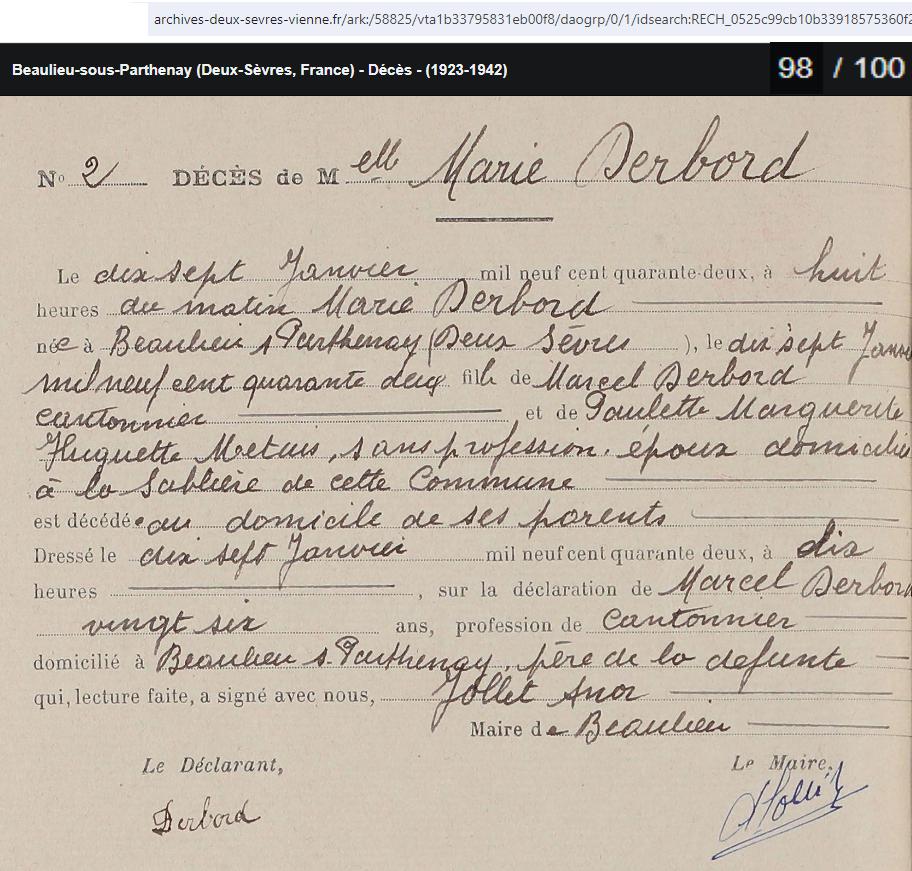 archives-deux-sevres-vienne.fr/ark:/58825/vta1b33795831eb00f8/daogrp/0/1/idsearch:RECH_0525c99cb10b33918575360f2
Beaulieu-sous-Parthenay (Deux-Sèvres, France) - Décès - (1923-1942) 98 / 100
No 2 DÉCÈS de Melle Marie Derbord
Le dix sept Janvier mil neuf cent quarante-deux, à huit
heures du matin Marie Derbord
née à Beaulieu s Parthenay (Deux Sèvres), le dix sept Janvie
mil neuf cent quarante deux fille de Marcel Derbord
cantonnier et de Paulette Marguerite
Huguette, sans profession. époux domicilié
à la Sablière de cette Commune
est décédée au domicile de ses parents
Dressé le dix sept Janvier mil neuf cent quarante deux, à dix
heures, sur la déclaration de Marcel Derbord
vingt six ans, profession de Cantonnier
domicilié à Beaulieu s. Parthenay, père de la defunte
qui, lecture faite, a signé avec nous, Jollet
Maire de Beaulieu
Le Déclarant, Le Maire,
Derbord